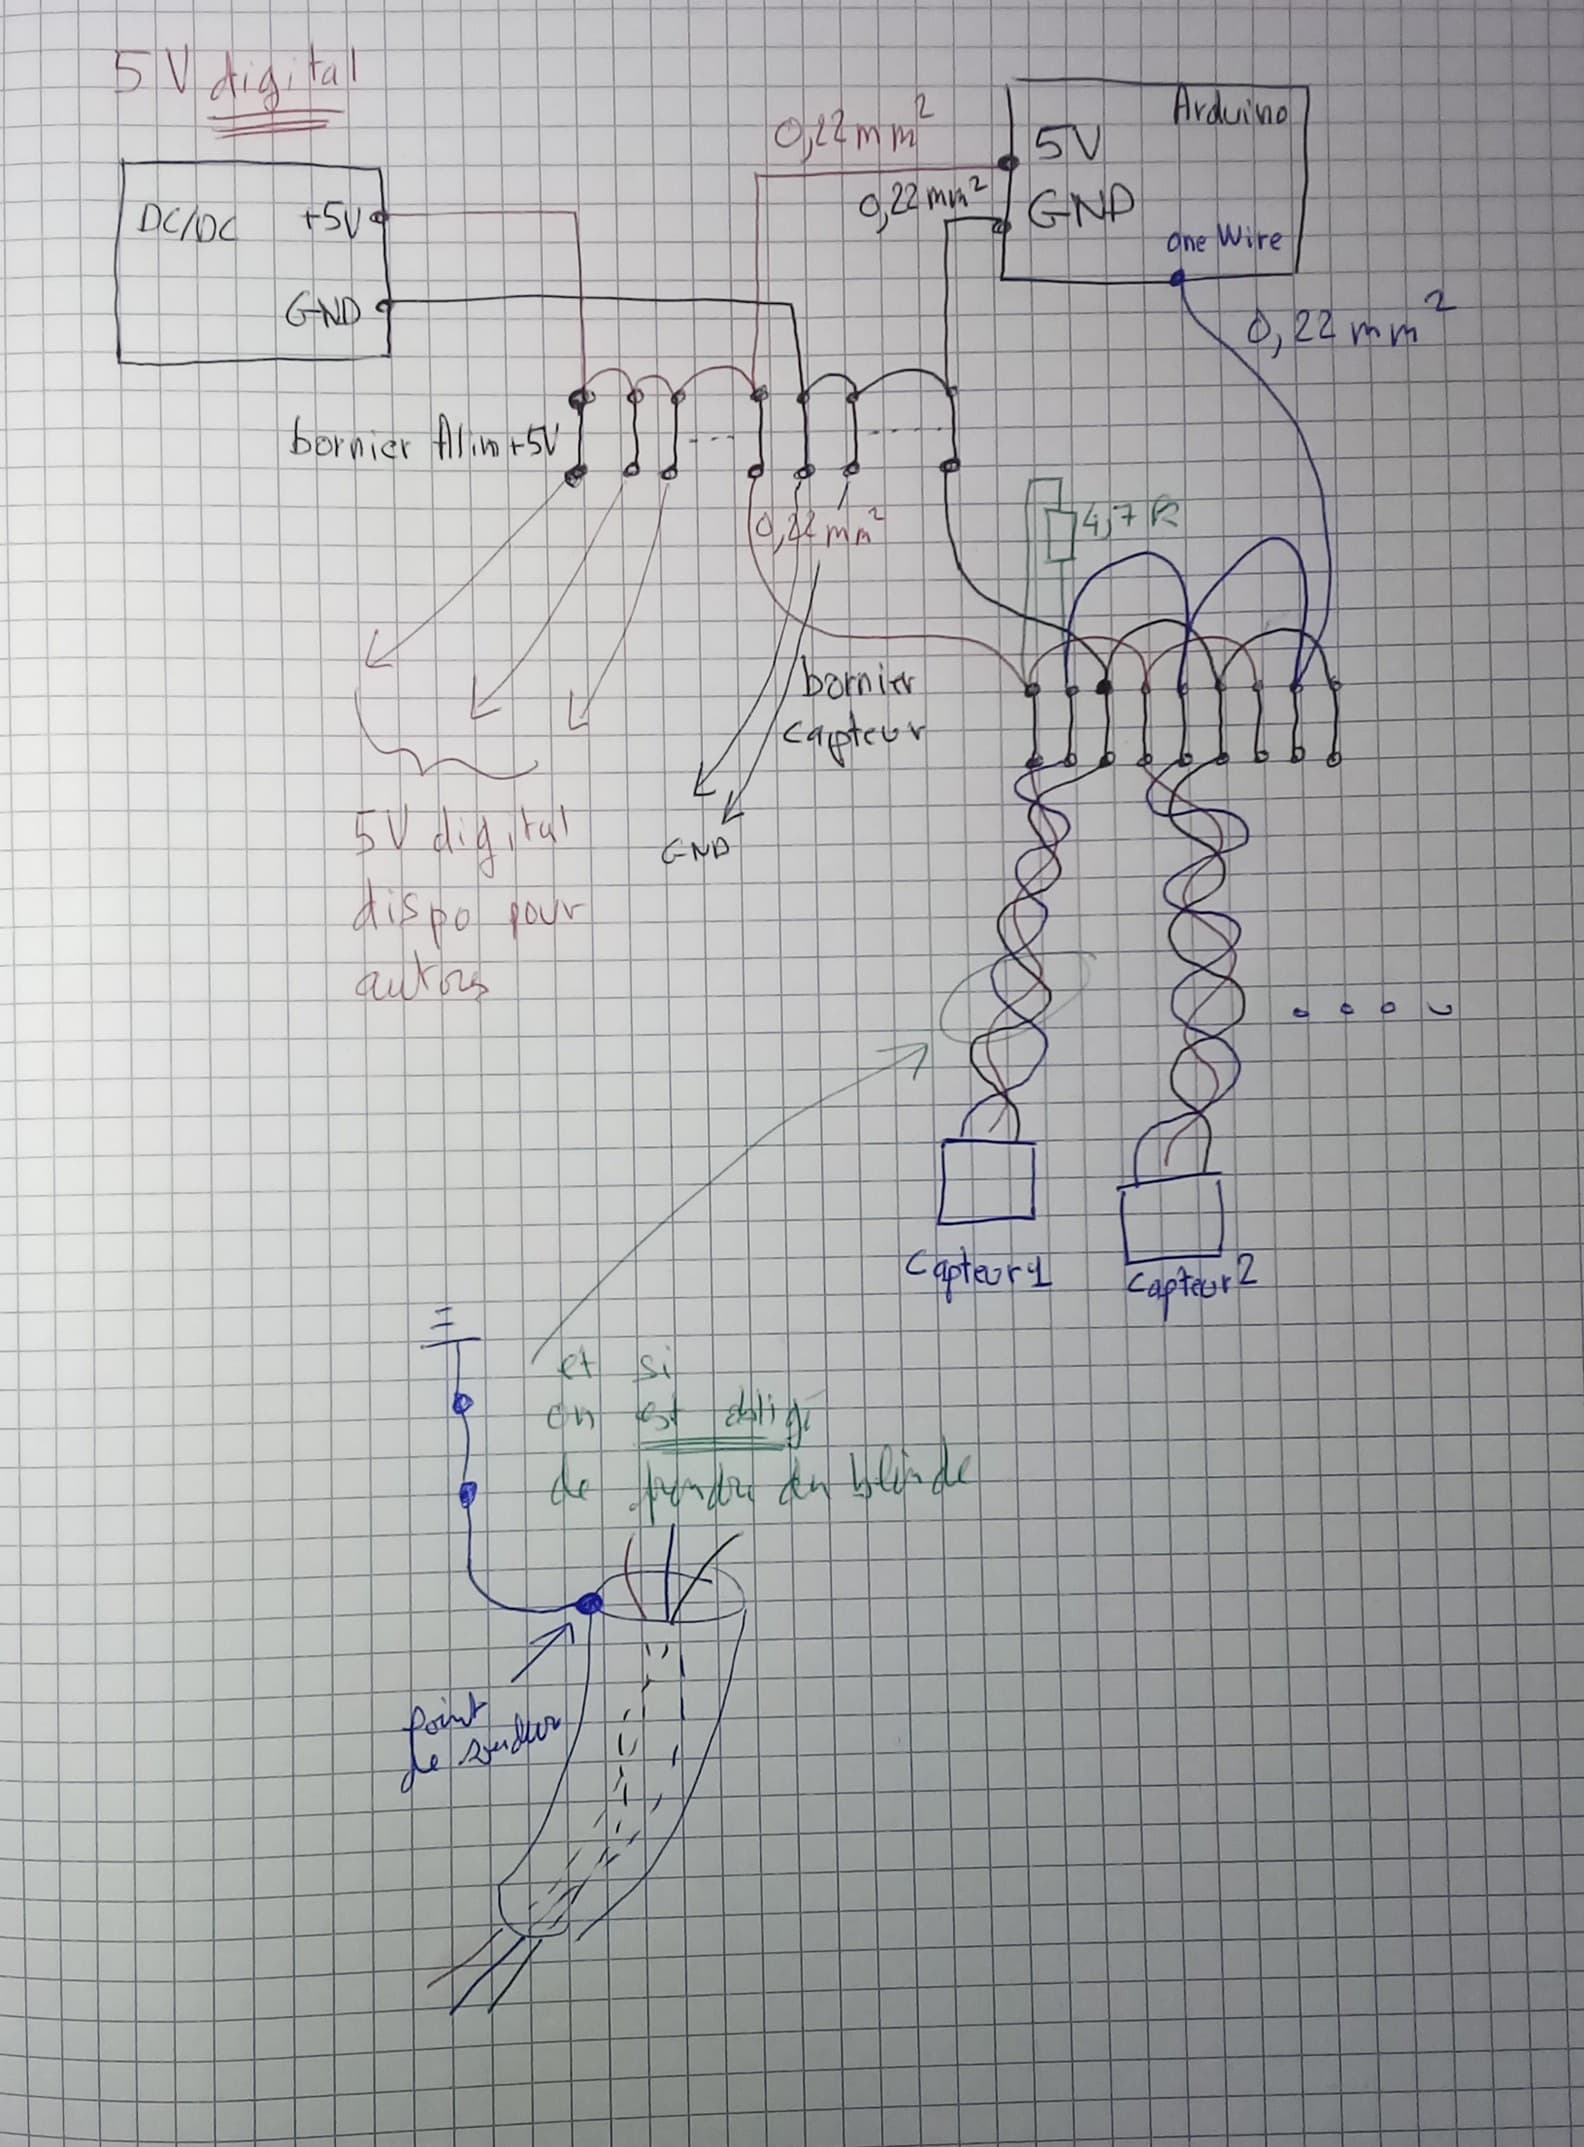 5V digital
DC/DC
+5V
GND
0,22 mm²
0,22 mm²
Arduino
5V
GND
one Wire
0,22 mm²
bornier Alim +5V
0,22 mm²
4,7 R
bornier
capteur
5V digital
dispo pour
autres
GND
Capteur 1
Capteur 2
et si
on est obligé
de prendre du blindé
point
de soudur